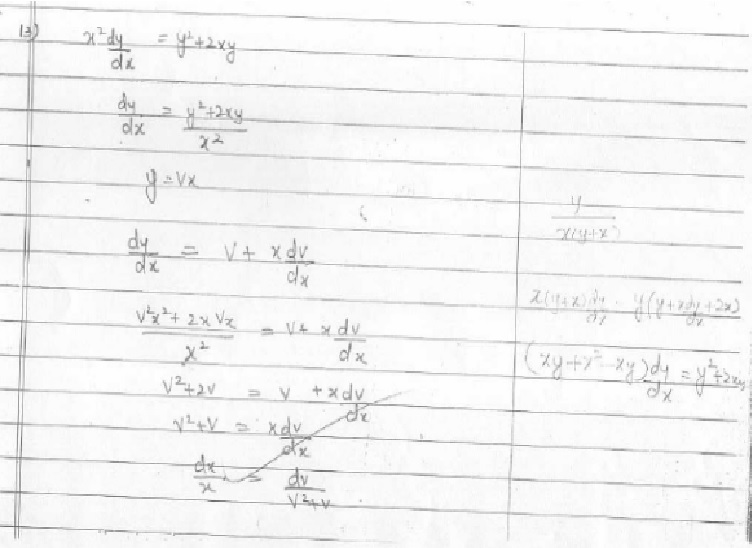 13) x² dy/dx = y²+2xy
dy/dx = (y²+2xy)/x²
y = vx
dy/dx = v + x dv/dx
(v²x² + 2x vx)/x² = v + x dv/dx
v²+2v = v + x dv/dx
v²+v = x dv/dx
dx/x = dv/(v²+v)
y/(x(y+x))
x(y+x) dy/dx - y(y+x dy/dx +2x)
(xy+x²-xy) dy/dx = y²+2xy